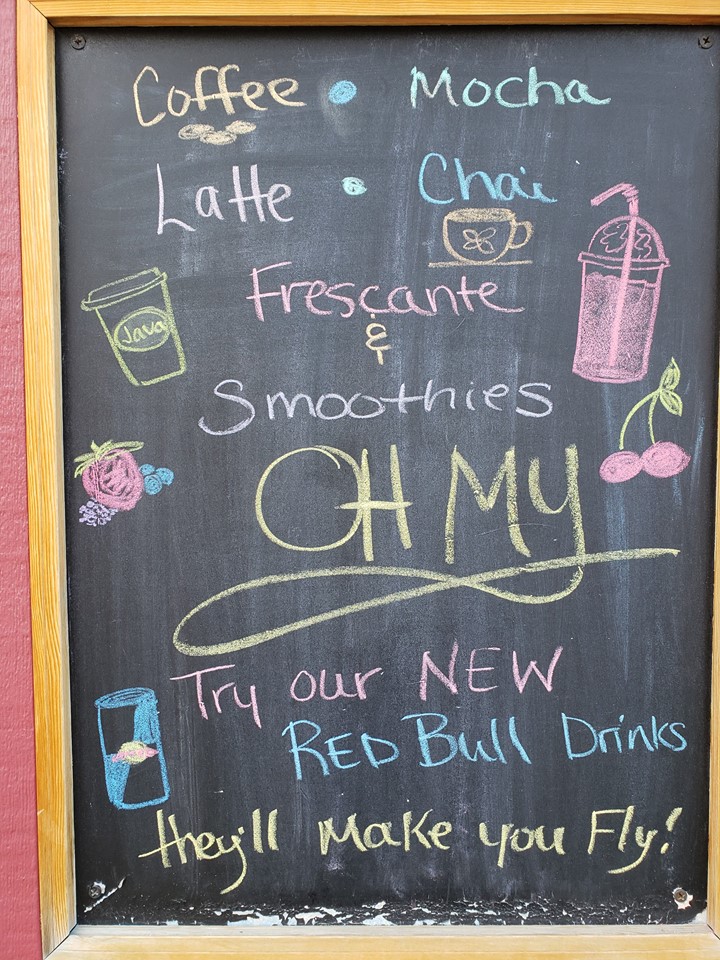 Coffee • Mocha
Latte • Chai
Frescante
Java
&
Smoothies
OH MY
Try our NEW
RED Bull Drinks
they'll Make you Fly!